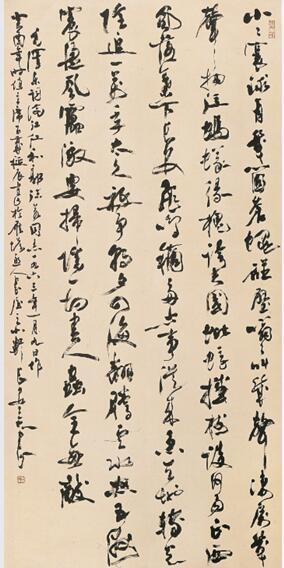 小〻寰球有幾個蒼蠅碰壁嗡〻叫幾聲凄厲幾
聲抽泣螞蟻緣槐誇大國蚍蜉撼樹談何易正西
風落葉下長安飛鳴鏑多少事從來急天地轉光
陰迫一萬年太久祇爭朝夕四海翻騰雲水怒五洲
震盪風雷激要掃除一切害人蟲全無敵
毛澤東詞滿江紅和郭沫若同志一九六三年一月九日作